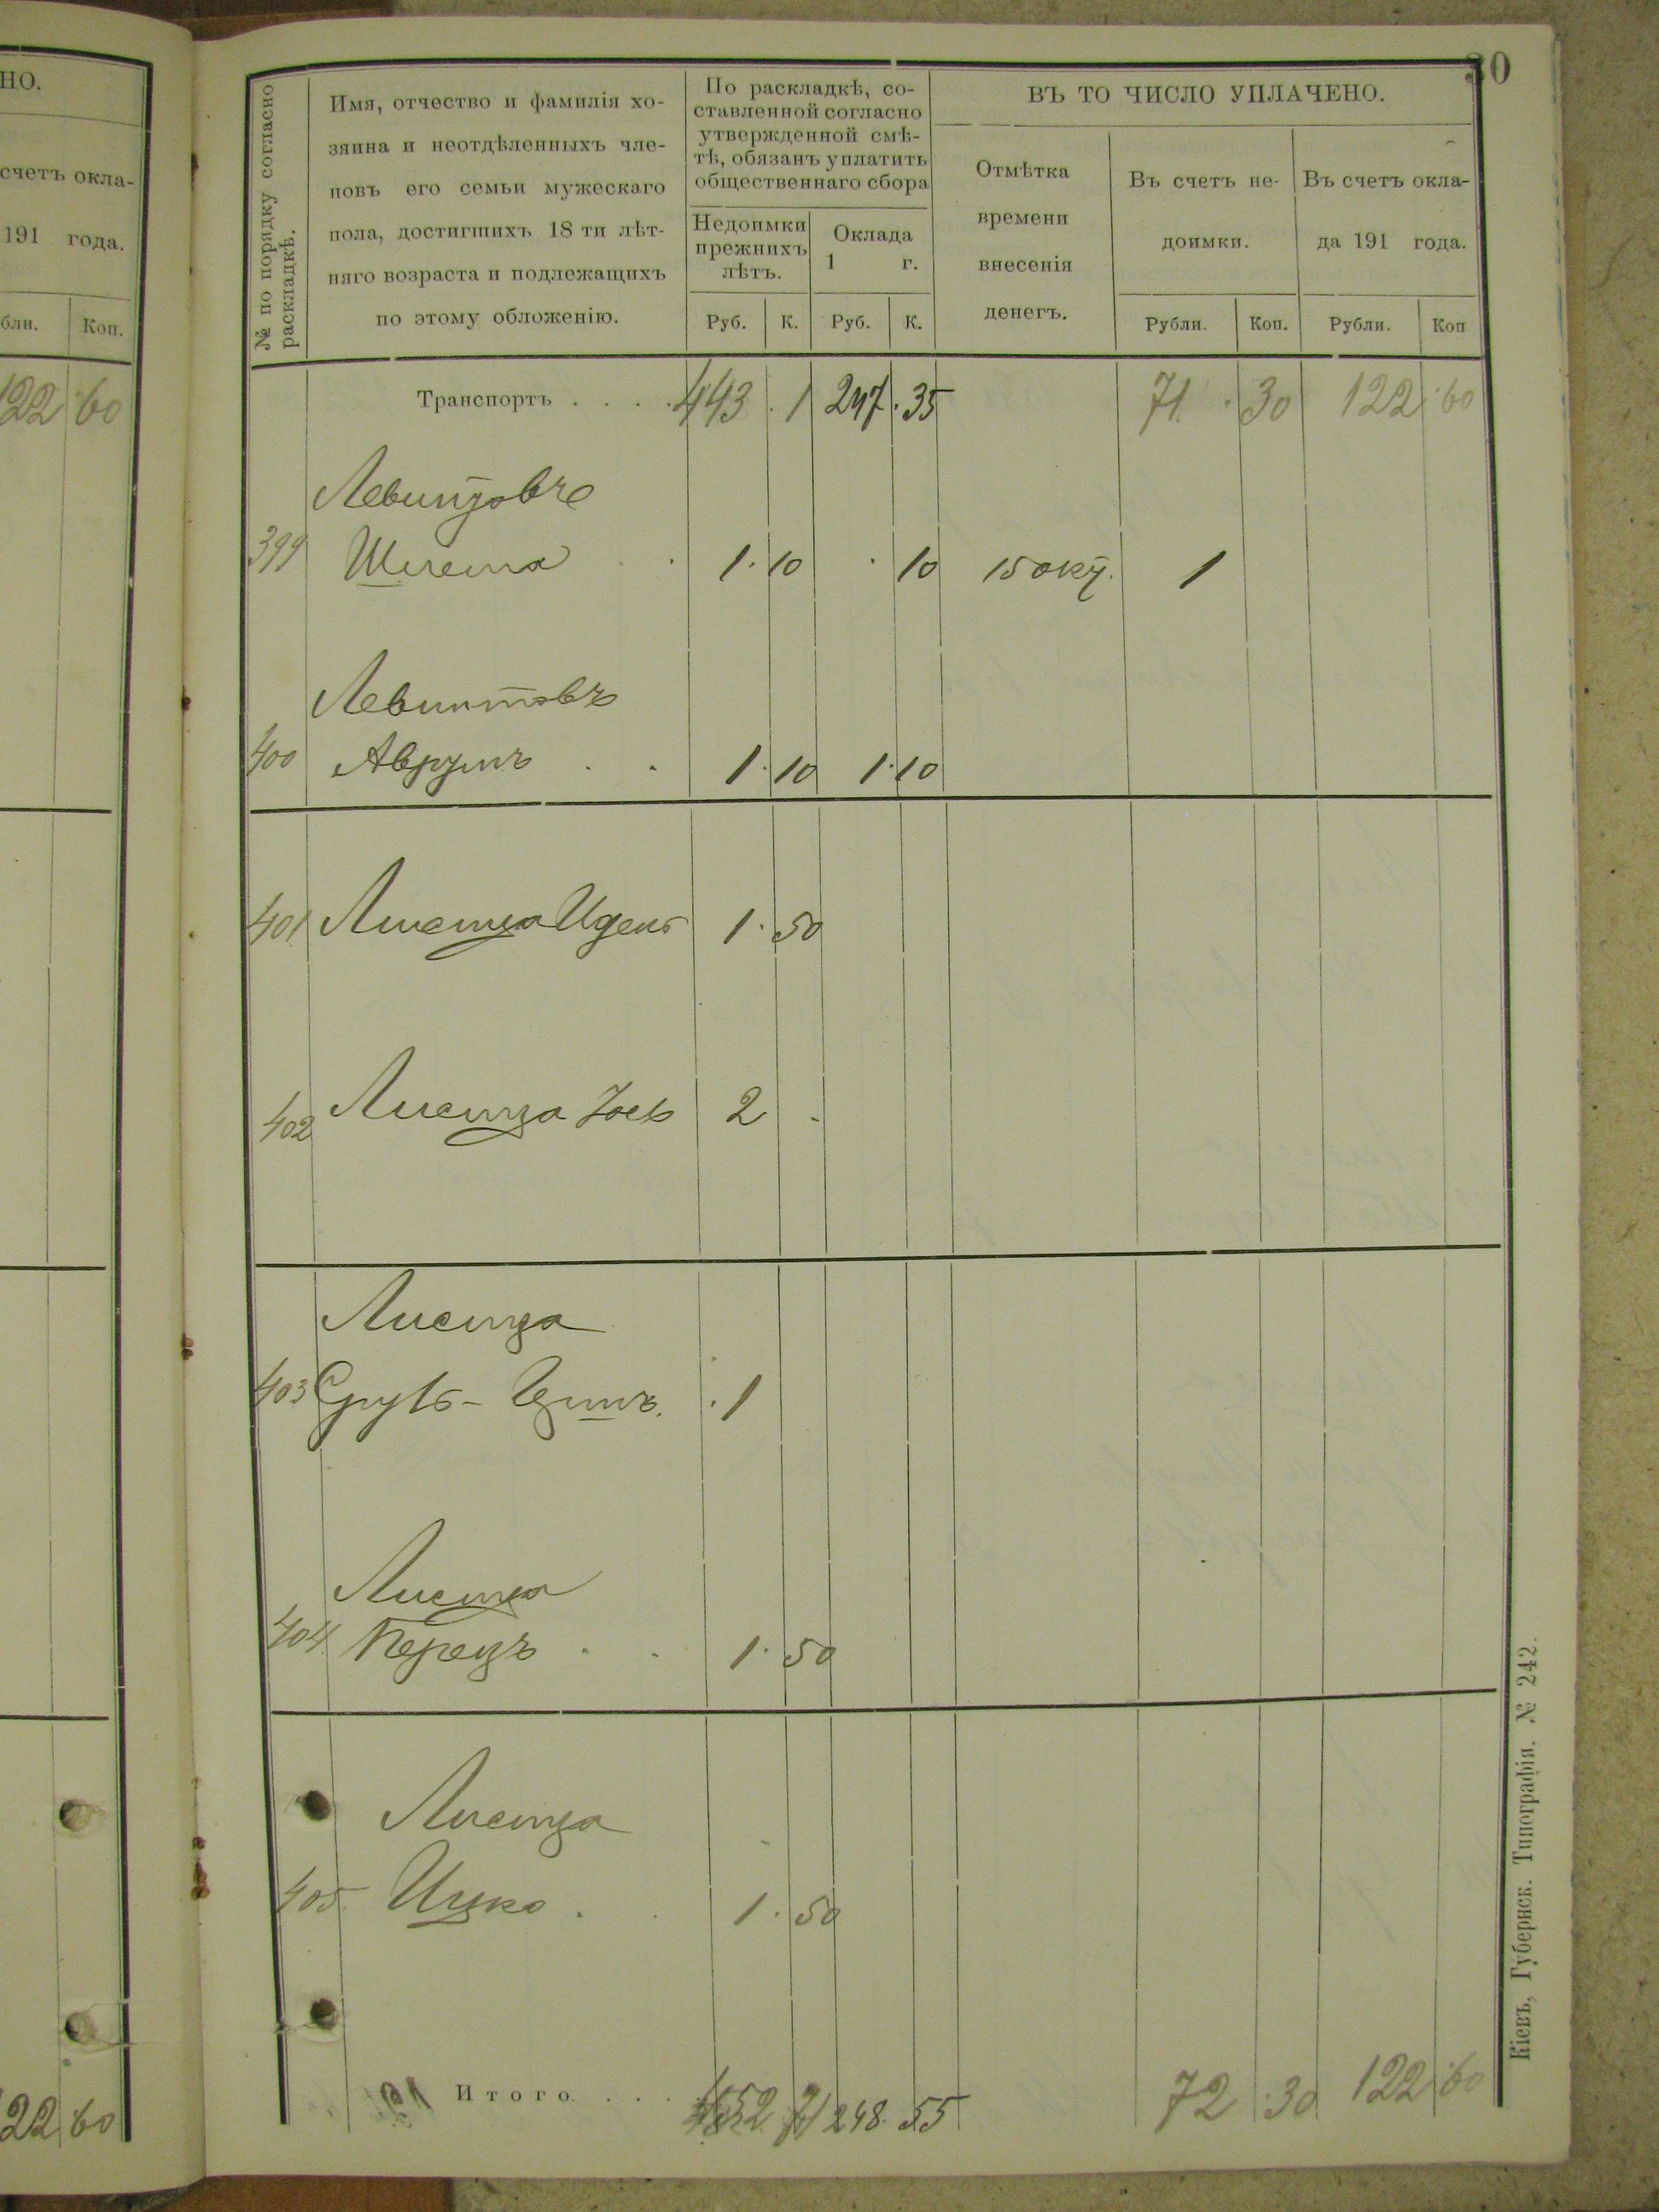 НО.
счетъ окла-
191 года.
бли. Коп.
122 60
22 60
30
№ по порядку согласно
раскладкѣ.
Имя, отчество и фамилія хо-
зяина и неотдѣленныхъ чле-
новъ его семьи мужескаго
пола, достигшихъ 18 ти лѣт-
няго возраста и подлежащихъ
по этому обложенію.
По раскладкѣ, со-
ставленной согласно
утвержденной смѣ-
тѣ, обязанъ уплатить
общественнаго сбора
Недоимки
прежнихъ
лѣтъ.
Оклада
1 г.
Руб. К. Руб. К.
ВЪ ТО ЧИСЛО УПЛАЧЕНО.
Отмѣтка
времени
внесенія
денегъ.
Въ счетъ не-
доимки.
Въ счетъ окла-
да 191 года.
Рубли. Коп. Рубли. Коп
Транспортъ . . . . 443 . 1 247 . 35 71 . 30 122 . 60
Левинтовъ
399 . . 1 . 10 . 10 15 окт. 1
Левинтовъ
400 Аврумъ . . 1 . 10 1 . 10
401 Лисица 1 . 50
402 Лисица 2 -
Лисица
403 Сруль - . 1
Лисица
404 Перецъ . . 1 . 50
Лисица
405. Ицко . . 1 . 50
Итого . . . 452 71 248 55 72 . 30 122 . 60
Кіевъ, Губернск. Типографія, № 242.